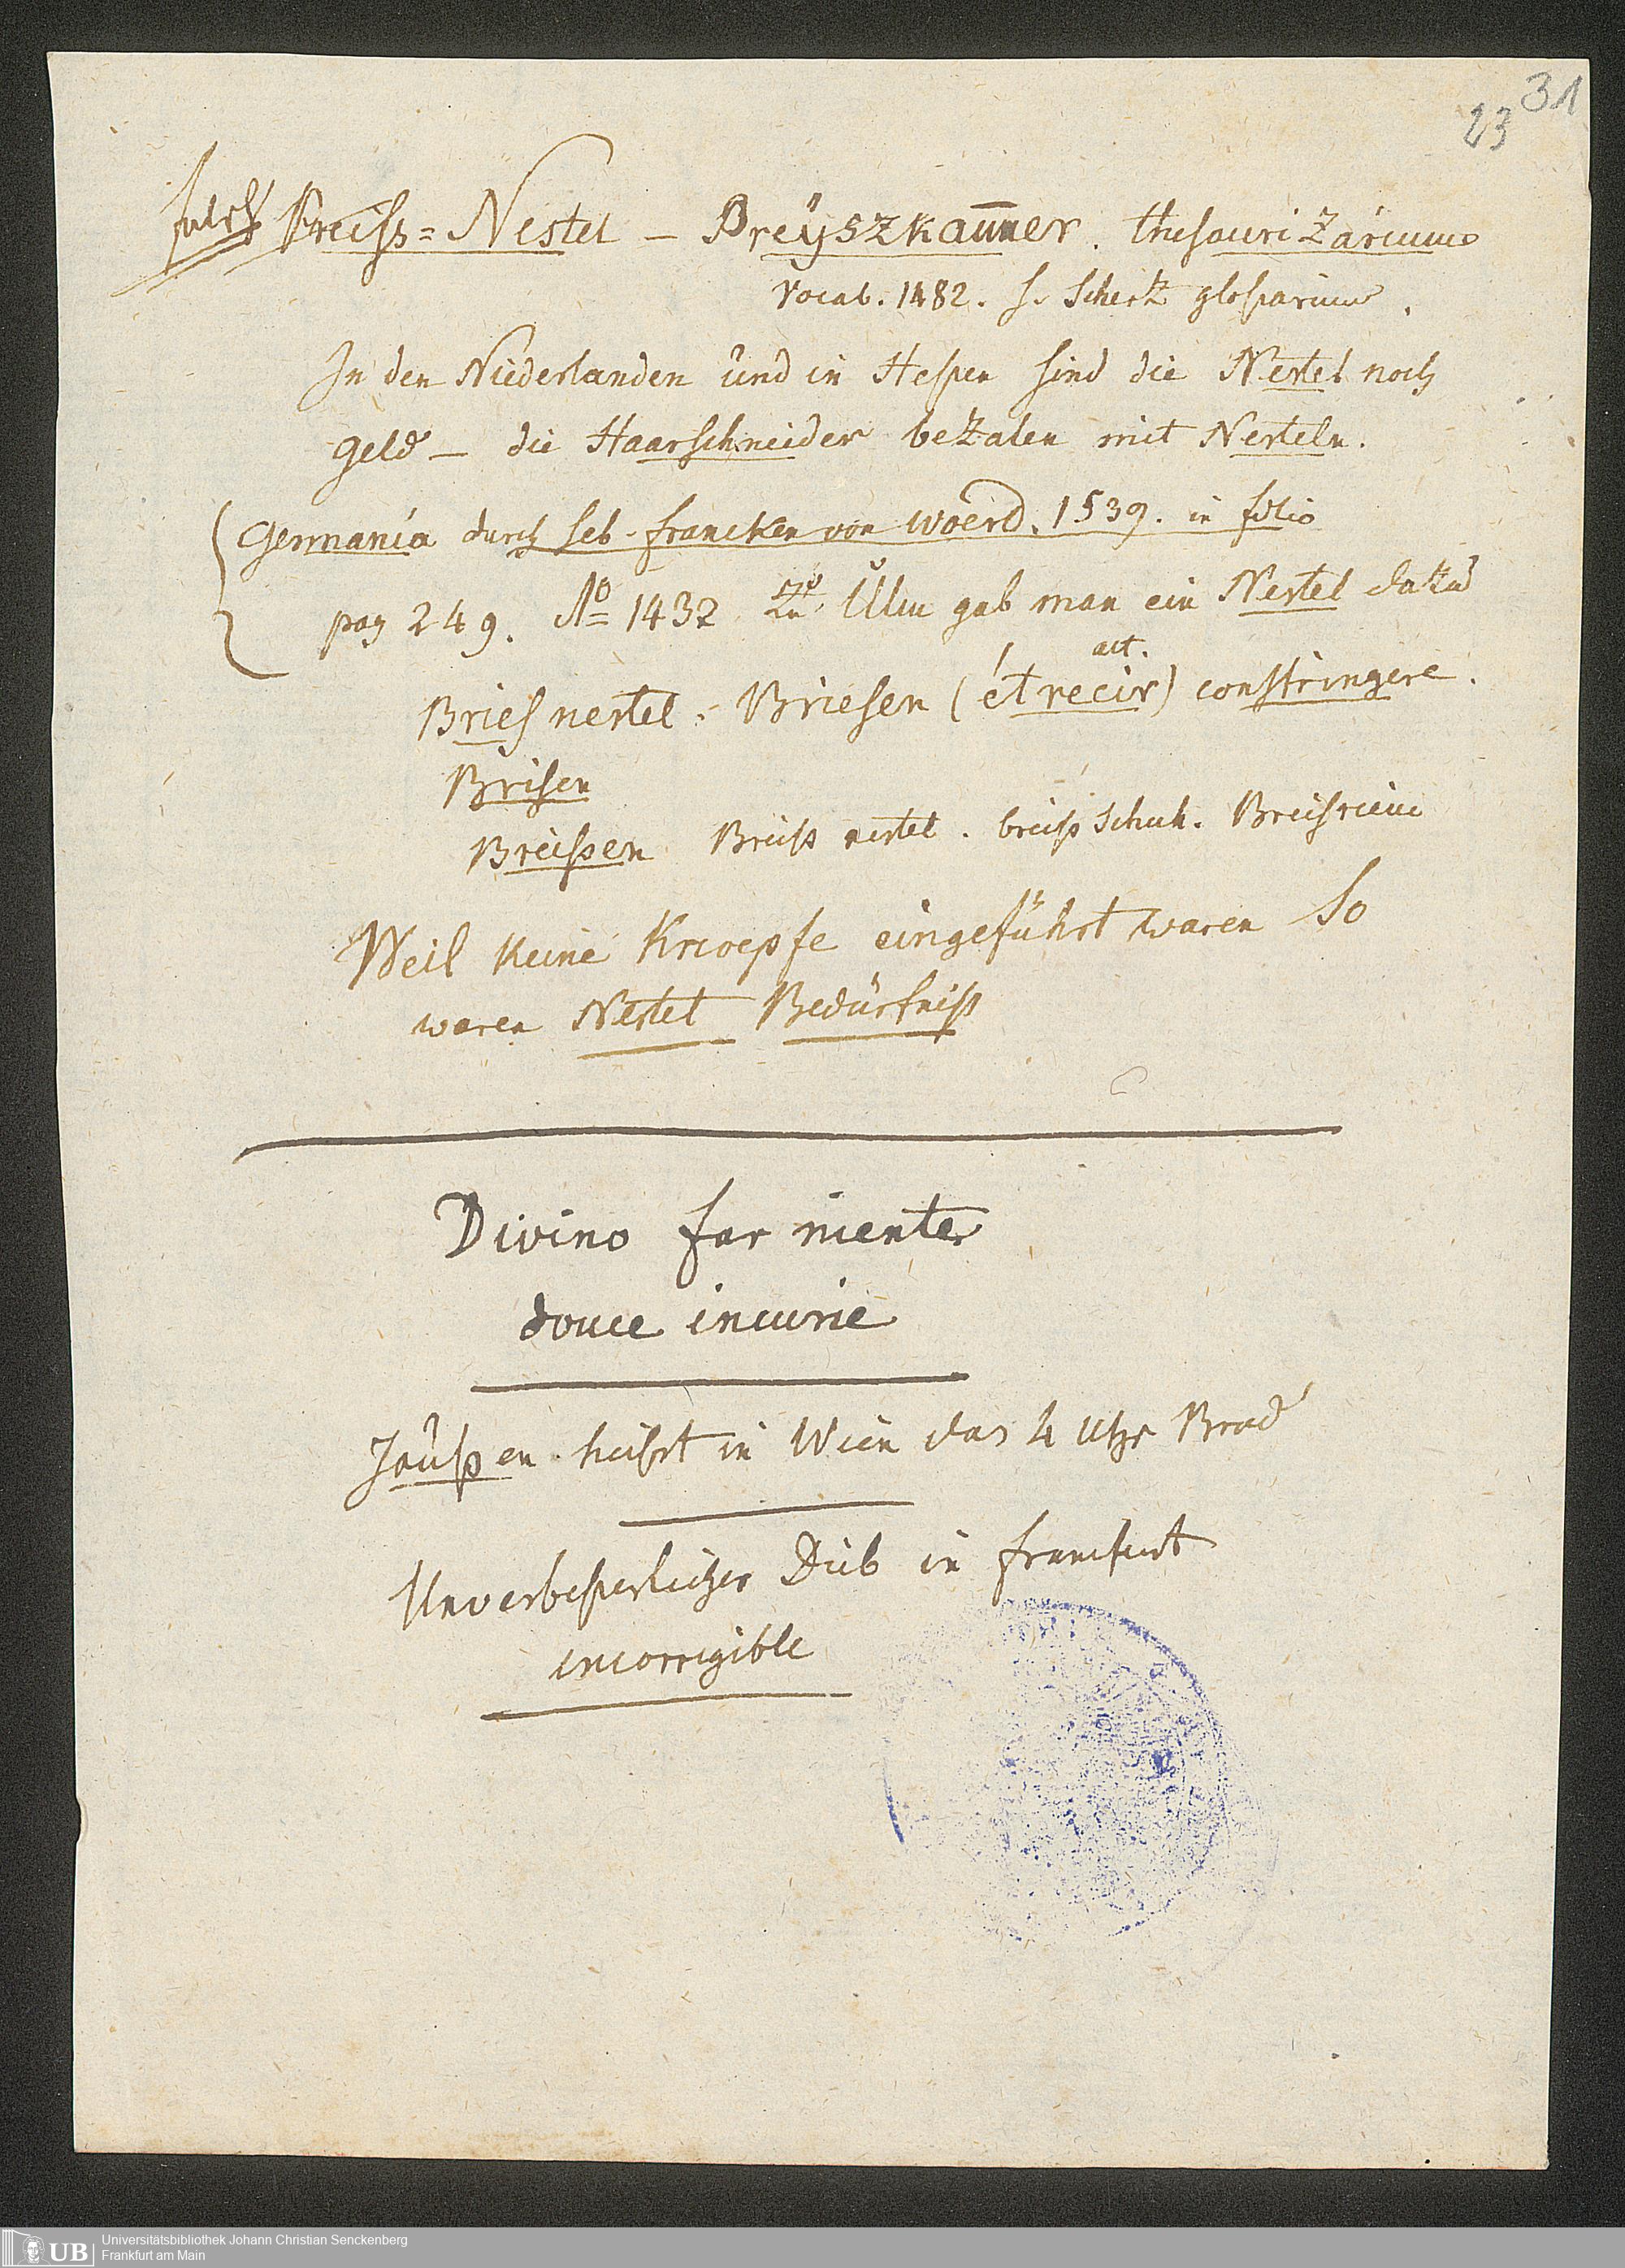 31
23
falsch Preiss=Nestel — Breÿszkam̅er. thesaurizarium
Vocab. 1482. s. Scherz glossarium.
In den Niederlanden und in Hessen sind die Nestel noch
Geld — die Haarschneider bezalen mit Nesteln.
Germania durch Seb. francken von woerd. 1539. in folio
pag 249. Aº 1432 zu Ulm gab man ein Nestel dazu
Briesnestel. Briesen (étrecir) act. constringere.
Brisen
Breissen Breiss nestel. breiss Schuh. Breisrieme
Weil keine Knoepfe eingeführt waren So
waren Nestel Bedürfniss
Divino far niente
douce incurie
Jaussen heisst in Wien das 4 Uhr Brod
Unverbesserlicher Dieb in francfurt
incorrigible
UB
Universitätsbibliothek Johann Christian Senckenberg
Frankfurt am Main